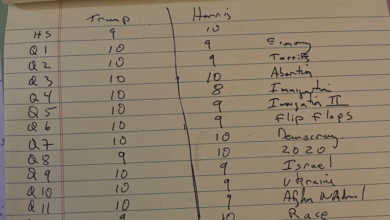 Trump Harris
HS 9 10
Q1 10 9 Economy
Q2 10 9 Tariffs
Q3 10 10 Abortion
Q4 10 8 Immigration
Q5 10 9 Immigration II
Q6 10 9 Flip Flops
Q7 10 10 Democracy
Q8 9 10 2020
Q9 10 9 Israel
Q10 10 9 Ukraine
Q11 10 9 Afghan
9 10 Race